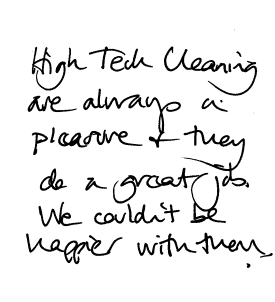 High Tech Cleaning
are always a
pleasure & they
do a great job.
We couldn't be
happier with them.